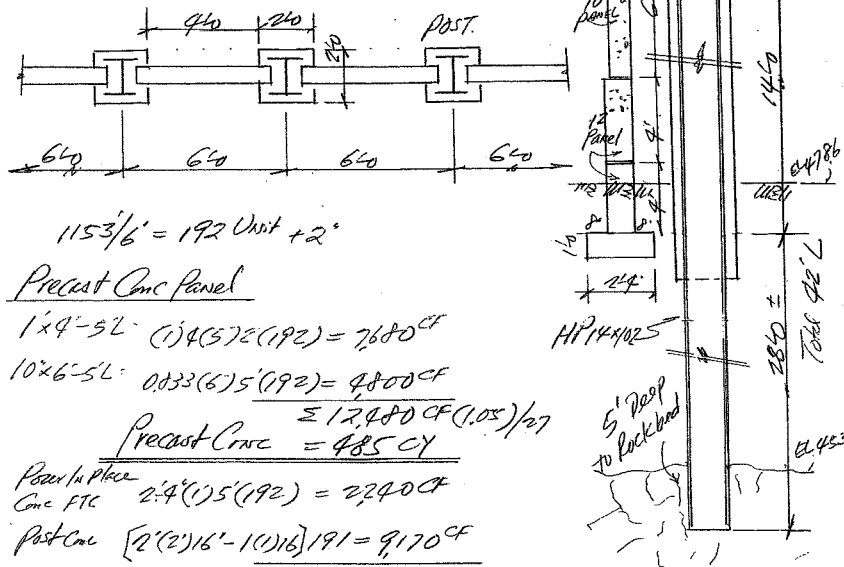 4'-0 2'-0 POST.
2'-0
6'-0 6'-0 6'-0 6'-0
1153'/6' = 192 Unit + 2"
Precast Conc Panel
1'x4'-5'L: (1)4(5)2(192) = 7,680 CF
10"x6'-5'L: 0.833(6)5'(192) = 4,800 CF
Σ 12,480 CF (1.05)/27
Precast Conc = 485 CY
Pour In Place
Conc FTG 2'-4"(1)5'(192) = 2,240 CF
Post Conc [2'(2')16' - 1(1)16] 191 = 9,170 CF
10"
Panel
6'
12"
Panel
4'
4'
8" 8"
1'-0
2'-4"
14'-0
El 478.6
HP 14x102.5
28'-0 ±
Total 42' L
5' Deep
to Rockbed
EL 453